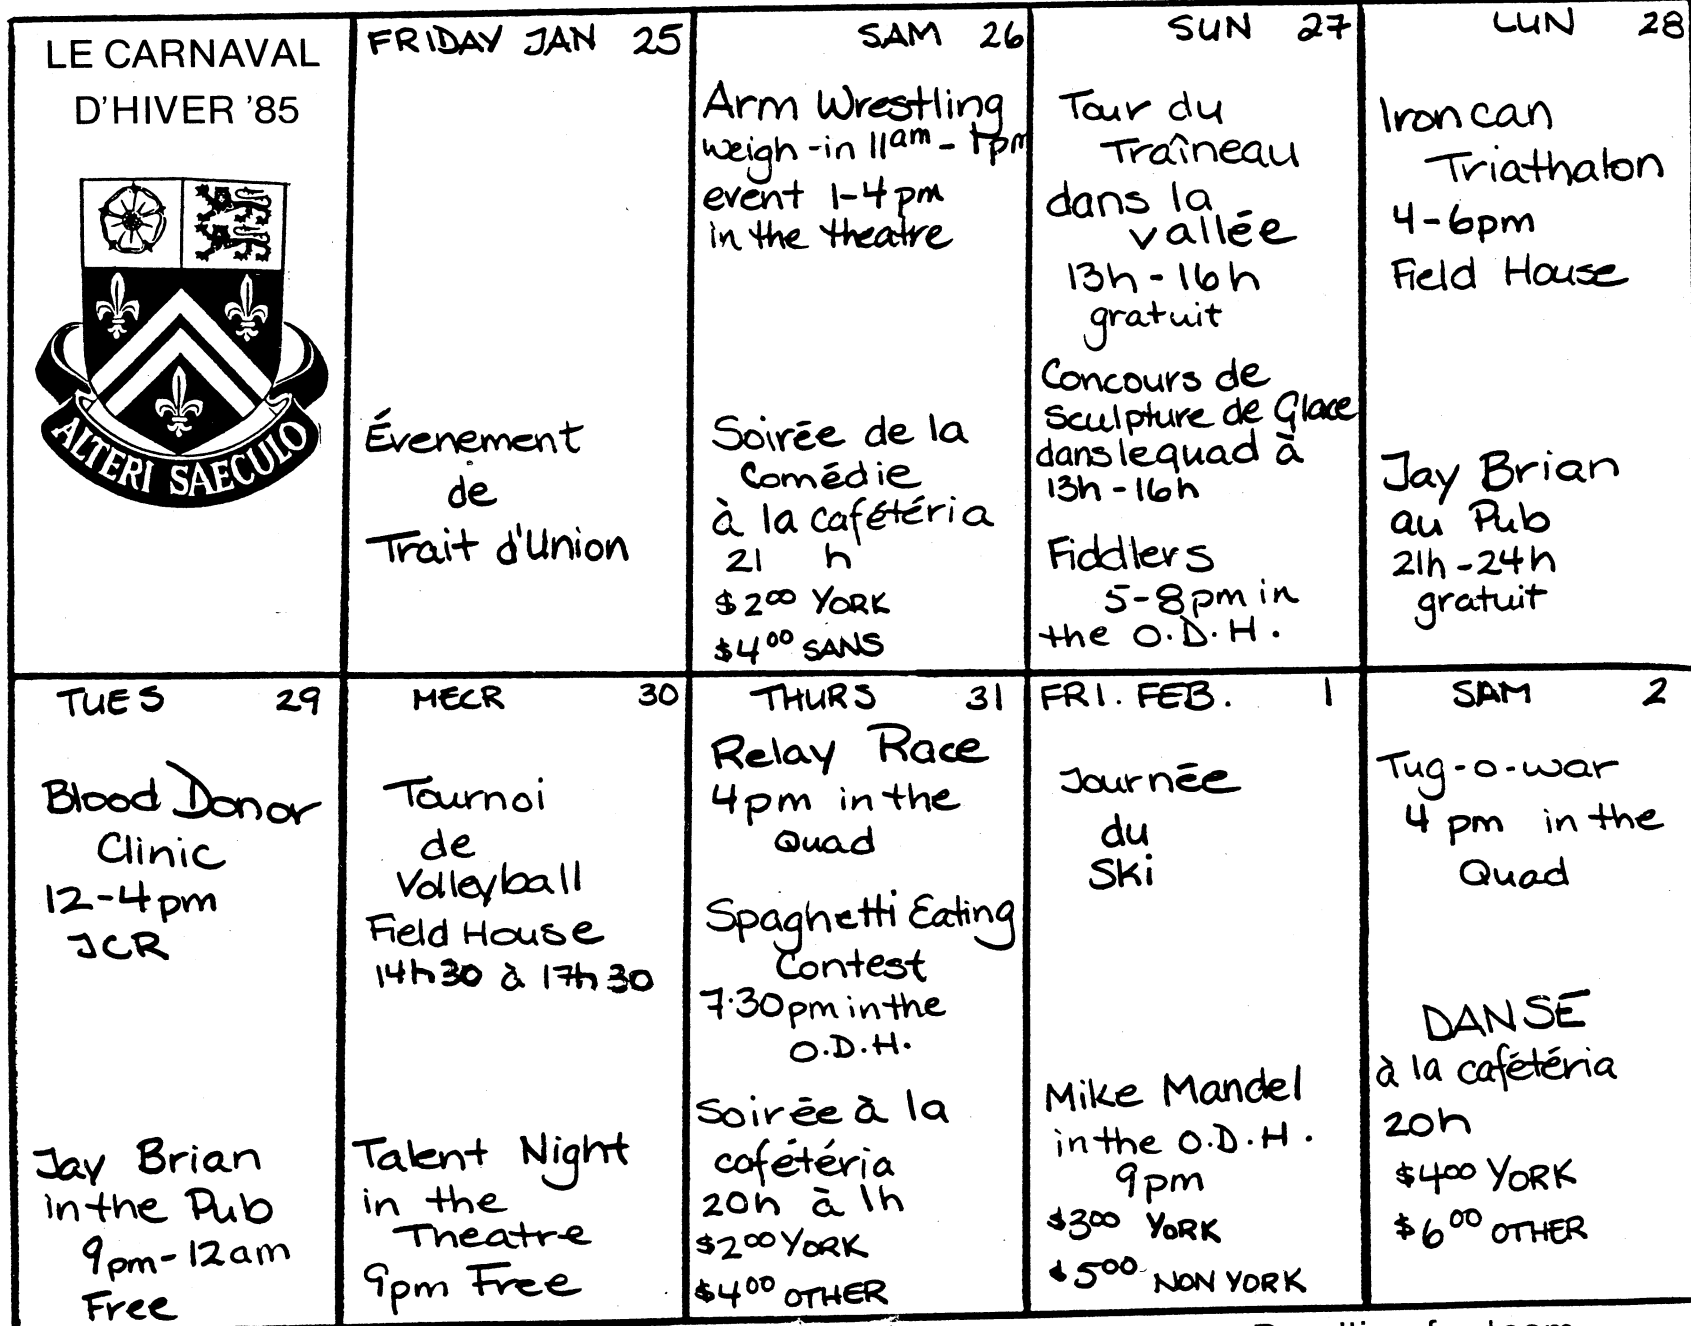 LE CARNAVAL
D'HIVER '85
ALTERI SAECULO
FRIDAY JAN 25
Évenement
de
Trait d'Union
SAM 26
Arm Wrestling
weigh-in 11am - 1pm
event 1-4 pm
in the theatre
Soirée de la
Comédie
à la cafétéria
21 h
$2.00 YORK
$4.00 SANS
SUN 27
Tour du
Traîneau
dans la
vallée
13h - 16h
gratuit
Concours de
Sculpture de Glace
dans le quad à
13h - 16h
Fiddlers
5-8pm in
the O.D.H.
LUN 28
Iron can
Triathalon
4-6pm
Field House
Jay Brian
au Pub
21h-24h
gratuit
TUES 29
Blood Donor
Clinic
12-4pm
JCR
Jay Brian
in the Pub
9pm-12am
Free
MECR 30
Tournoi
de
Volleyball
Field House
14h30 à 17h30
Talent Night
in the
Theatre
9pm Free
THURS 31
Relay Race
4pm in the
Quad
Spaghetti Eating
Contest
7:30pm in the
O.D.H.
Soirée à la
cafétéria
20h à 1h
$2.00 YORK
$4.00 OTHER
FRI. FEB. 1
Journée
du
Ski
Mike Mandel
in the O.D.H.
9pm
$3.00 YORK
$5.00 NON YORK
SAM 2
Tug-o-war
4 pm in the
Quad
DANSE
à la cafétéria
20h
$4.00 YORK
$6.00 OTHER